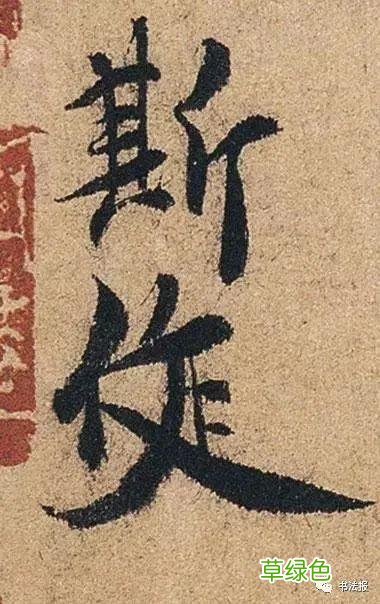 斯文
草绿色
书法报